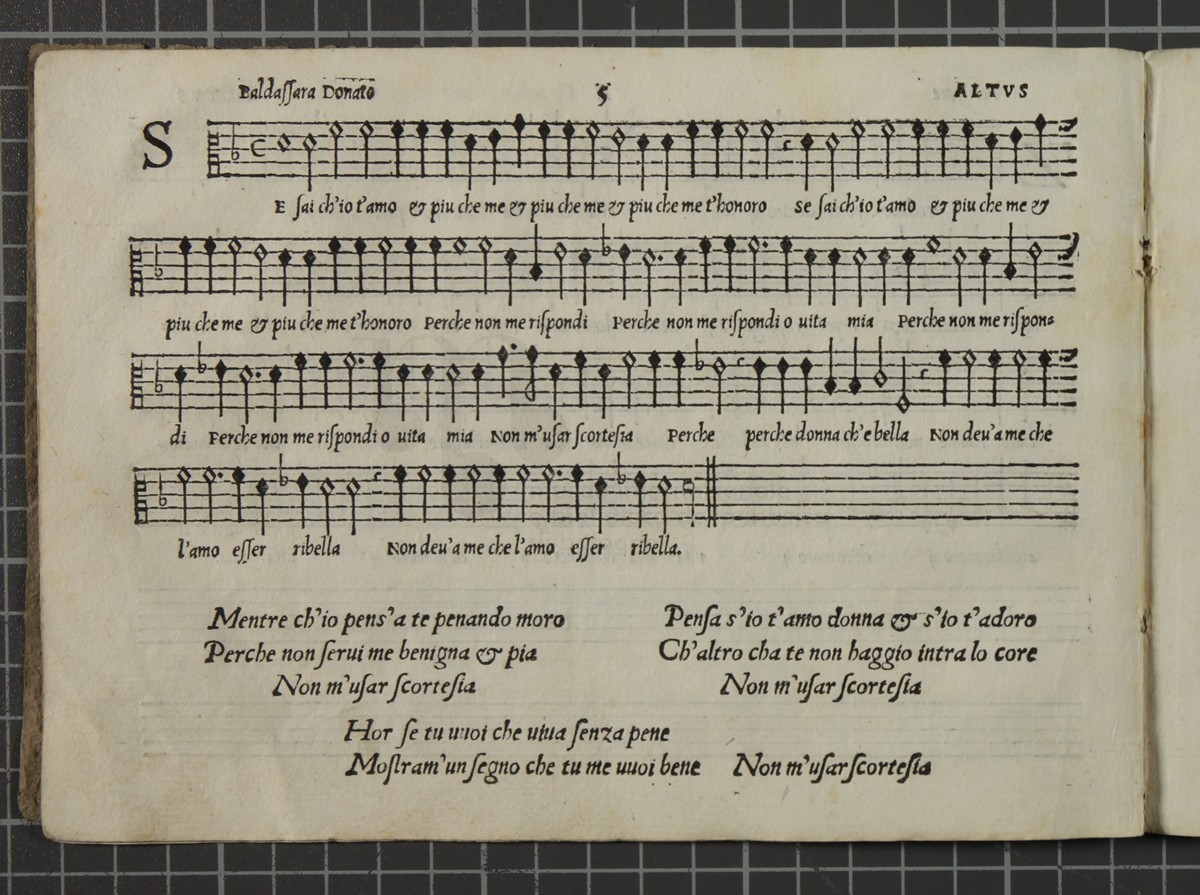 Baldaſſara Donato 5 ALTVS
S
E ſai ch'io t'amo & piu che me & piu che me & piu che me t'honoro Se ſai ch'io t'amo & piu che me &
piu che me & piu che me t'honoro Perche non me riſpondi Perche non me riſpondi o uita mia Perche non me riſpon⸗
di Perche non me riſpondi o uita mia Non m'uſar ſcorteſia Perche perche donna ch'e bella Non deu'a me che
l'amo eſſer ribella Non deu'a me che l'amo eſſer ribella.
Mentre ch'io pens'a te penando moro
Perche non ſerui me benigna & pia
Non m'uſar ſcorteſia
Penſa s'io t'amo donna & s'io t'adoro
Ch'altro cha te non haggio intra lo core
Non m'uſar ſcorteſia
Hor ſe tu uuoi che uiua ſenza pene
Moſtram'un ſegno che tu me uuoi bene Non m'uſar ſcorteſia